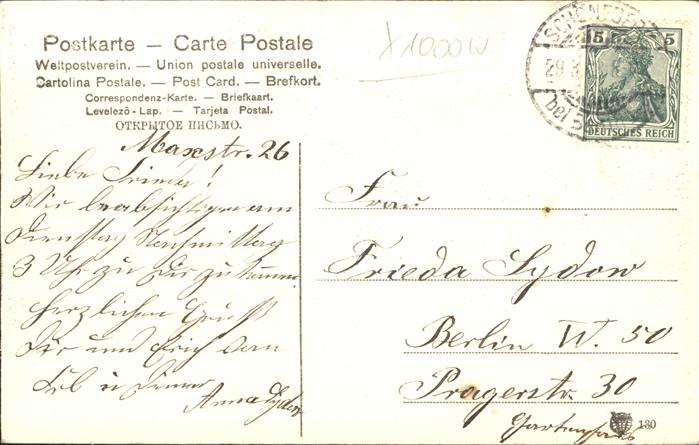 Postkarte — Carte Postale
Weltpostverein. — Union postale universelle.
Cartolina Postale. — Post Card. — Brefkort.
Correspondenz-Karte. — Briefkaart.
Levelezö-Lap. — Tarjeta Postal.
ОТКРЫТОЕ ПИСЬМО.
X1000W
SCHÖNEBERG
29
5 5
DEUTSCHES REICH
Maxstr. 26
Liebe Frieda!
Wir beabsichtigen am
Dienstag Nachmittag
3 Uhr zu Dir zu kommen.
Herzlichen Gruß
Dir und Erich von
Anna
Frau
Frieda Sydow
Berlin W. 50
Pragerstr. 30
Gartenhaus
130